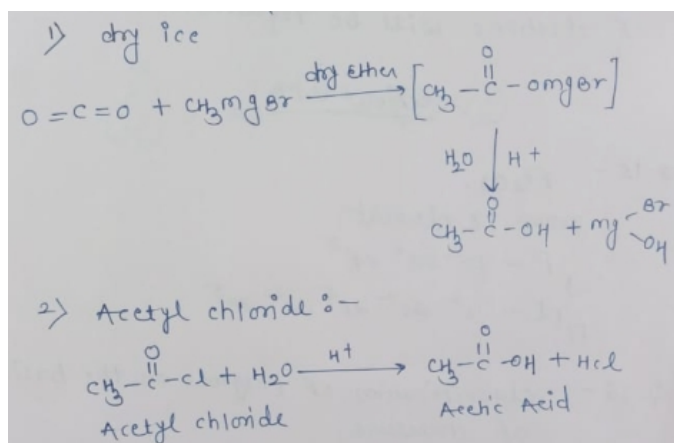 1) dry ice
O
O=C=O + CH3mgBr dry Ether [CH3-C-omgBr]
H2O H+
O
CH3-C-OH + mg Br OH
2) Acetyl chloride :-
O O
CH3-C-Cl + H2O H+ CH3-C-OH + Hcl
Acetyl chloride Acetic Acid